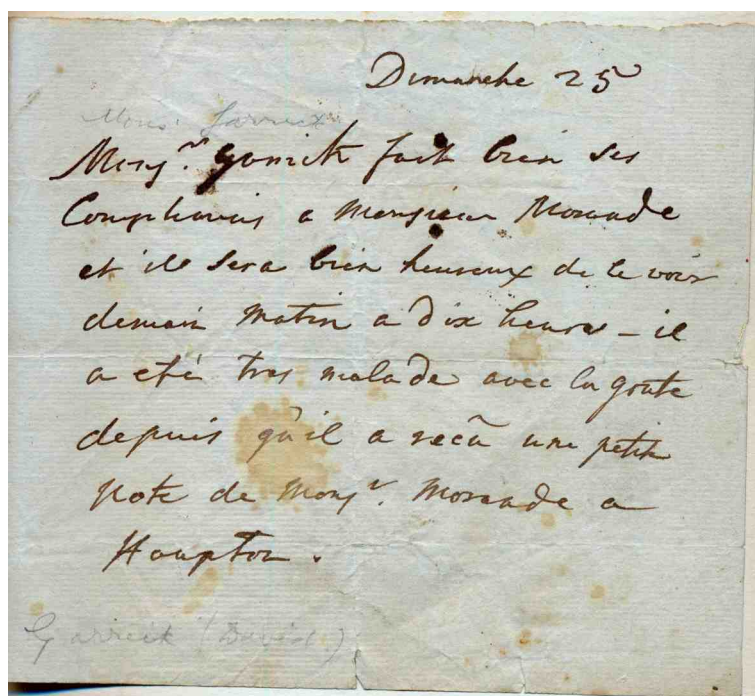 Dimanche 25
Mons. Garrick
Monsr. Garrick fait bien ses
Complimens a Monsieur Morande
et il sera bien heureux de le voir
demain matin a dix heures - il
a eté tres malade avec la goute
depuis qu'il a reçû une petite
note de Monsr. Morande a
Hampton.
Garrick (David)